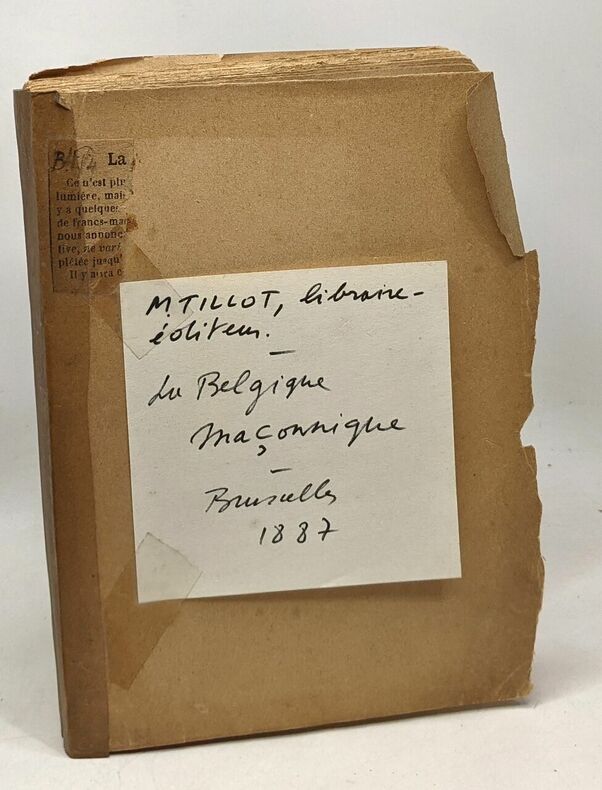 La
Ce n'est plu
lumière, mai
y a quelques
de francs-ma
nous annonc
tive, ne var
plétée jusqu'
Il y aura
M. TILLOT, libraire-
éditeur.
La Belgique
maçonnique
Bruxelles
1887